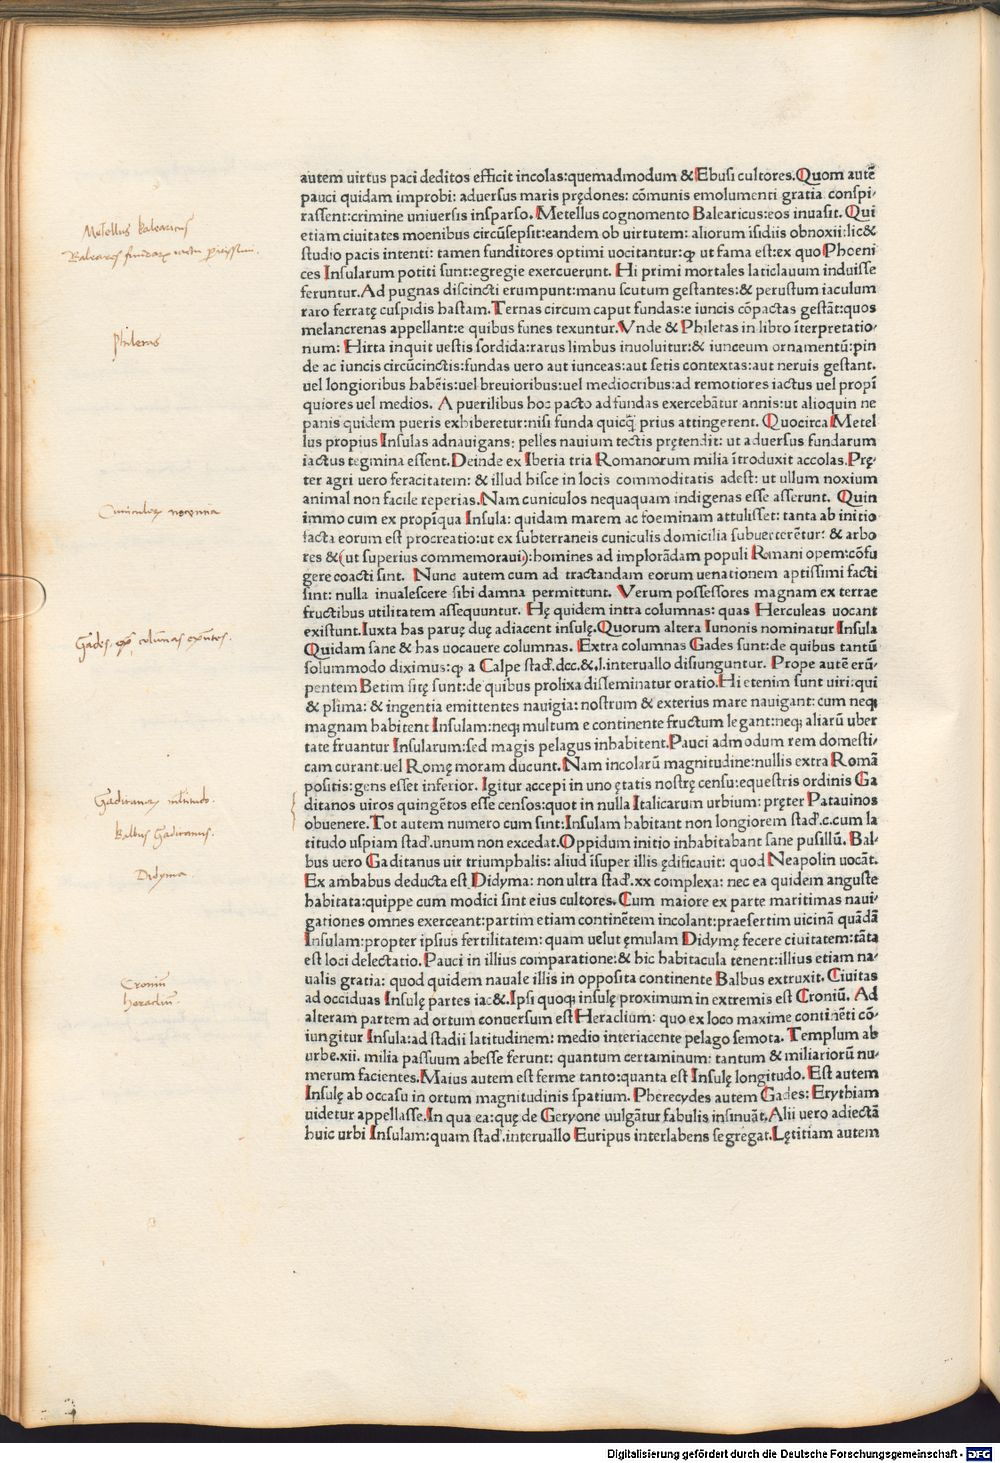 autem uirtus paci deditos efficit incolas:quemadmodum & Ebusi cultores.Quom autē
pauci quidam improbi: aduersus maris prędones: cōmunis emolumenti gratia conspi-
rassent:crimine uniuersis insparso. Metellus cognomento Balearicus:eos inuasit. Qui
etiam ciuitates moenibus circūsepsit:eandem ob uirtutem: aliorum īsidiis obnoxii:lic&
studio pacis intenti: tamen funditores optimi uocitantur:ꝙ ut fama est:ex quo Phoeni
ces Insularum potiti sunt:egregie exercuerunt. Hi primi mortales laticlauum induisse
feruntur.Ad pugnas discincti erumpunt:manu scutum gestantes:& perustum iaculum
raro ferratę cuspidis hastam.Ternas circum caput fundas:e iuncis cōpactas gestāt:quos
melancrenas appellant:e quibus funes texuntur.Vnde & Philetas in libro īterpretatio-
num: Hirta inquit uestis sordida:rarus limbus inuoluitur:& iunceum ornamentū:pin
de ac iuncis circūcinctis:fundas uero aut iunceas:aut setis contextas:aut neruis gestant.
uel longioribus habēis:uel breuioribus:uel mediocribus:ad remotiores iactus uel propī
quiores uel medios. A puerilibus hoc pacto ad fundas exercebātur annis:ut alioquin ne
panis quidem pueris exhiberetur:nisi funda quicq̄ prius attingerent. Quocirca Metel
lus propius Insulas adnauigans: pelles nauium tectis prętendit: ut aduersus fundarum
iactus tegmina essent.Deinde ex Iberia tria Romanorum milia ītroduxit accolas.Prę-
ter agri uero feracitatem: & illud hisce in locis commoditatis adest: ut ullum noxium
animal non facile reperias.Nam cuniculos nequaquam indigenas esse asserunt. Quin
immo cum ex propīqua Insula: quidam marem ac foeminam attulisset: tanta ab initio
facta eorum est procreatio:ut ex subterraneis cuniculis domicilia subuerterētur: & arbo
res &(ut superius commemoraui):homines ad implorādam populi Romani opem:cōfu
gere coacti sint. Nunc autem cum ad tractandam eorum uenationem aptissimi facti
sint: nulla inualescere sibi damna permittunt. Verum possessores magnam ex terrae
fructibus utilitatem assequuntur. Hę quidem intra columnas: quas Herculeas uocant
existunt.Iuxta has paruę duę adiacent insulę.Quorum altera Iunonis nominatur Insula
Quidam sane & has uocauere columnas. Extra columnas Gades sunt:de quibus tantū
solummodo diximus:ꝙ a Calpe stad.dcc.&.l.interuallo disiunguntur. Prope autē erū-
pentem Betim sitę sunt:de quibus prolixa disseminatur oratio.Hi etenim sunt uiri:qui
& plīma: & ingentia emittentes nauigia: nostrum & exterius mare nauigant: cum neq;
magnam habitent Insulam:neq; multum e continente fructum legant:neq; aliarū uber
tate fruantur Insularum:sed magis pelagus inhabitent.Pauci admodum rem domesti-
cam curant:uel Romę moram ducunt.Nam incolarū magnitudine:nullis extra Romā
positis:gens esset inferior. Igitur accepi in uno ętatis nostrę censu:equestris ordinis Ga
ditanos uiros quingētos esse censos:quot in nulla Italicarum urbium: pręter Patauinos
obuenere.Tot autem numero cum sint:Insulam habitant non longiorem stad.c.cum la
titudo uspiam stad.unum non excedat.Oppidum initio inhabitabant sane pusillū. Bal-
bus uero Gaditanus uir triumphalis: aliud īsuper illis ędificauit: quod Neapolin uocāt.
Ex ambabus deducta est Didyma: non ultra stad.xx complexa: nec ea quidem anguste
habitata:quippe cum modici sint eius cultores. Cum maiore ex parte maritimas naui-
gationes omnes exerceant:partim etiam continētem incolant:praesertim uicinā quādā
Insulam:propter ipsius fertilitatem: quam uelut ęmulam Didymę fecere ciuitatem:tāta
est loci delectatio. Pauci in illius comparatione:& hic habitacula tenent:illius etiam na-
ualis gratia: quod quidem nauale illis in opposita continente Balbus extruxit. Ciuitas
ad occiduas Insulę partes iac&. Ipsi quoq; insulę proximum in extremis est Croniū. Ad
alteram partem ad ortum conuersum est Heraclium: quo ex loco maxime continēti cō-
iungitur Insula:ad stadii latitudinem: medio interiacente pelago semota. Templum ab
urbe.xii. milia passuum abesse ferunt: quantum certaminum: tantum & miliariorū nu-
merum facientes.Maius autem est ferme tanto:quanta est Insulę longitudo. Est autem
Insulę ab occasu in ortum magnitudinis spatium. Pherecydes autem Gades: Erythiam
uidetur appellasse.In qua ea:quę de Geryone uulgātur fabulis insinuāt.Alii uero adiectā
huic urbi Insulam:quam stad.interuallo Euripus interlabens segregat.Lętitiam autem
Metellus balearicus
Baleares
Philetas
Gades
columnas
Balbus Gaditanus.
Didyma.
Cronium
heraclium
Digitalisierung gefördert durch die Deutsche Forschungsgemeinschaft - DFG